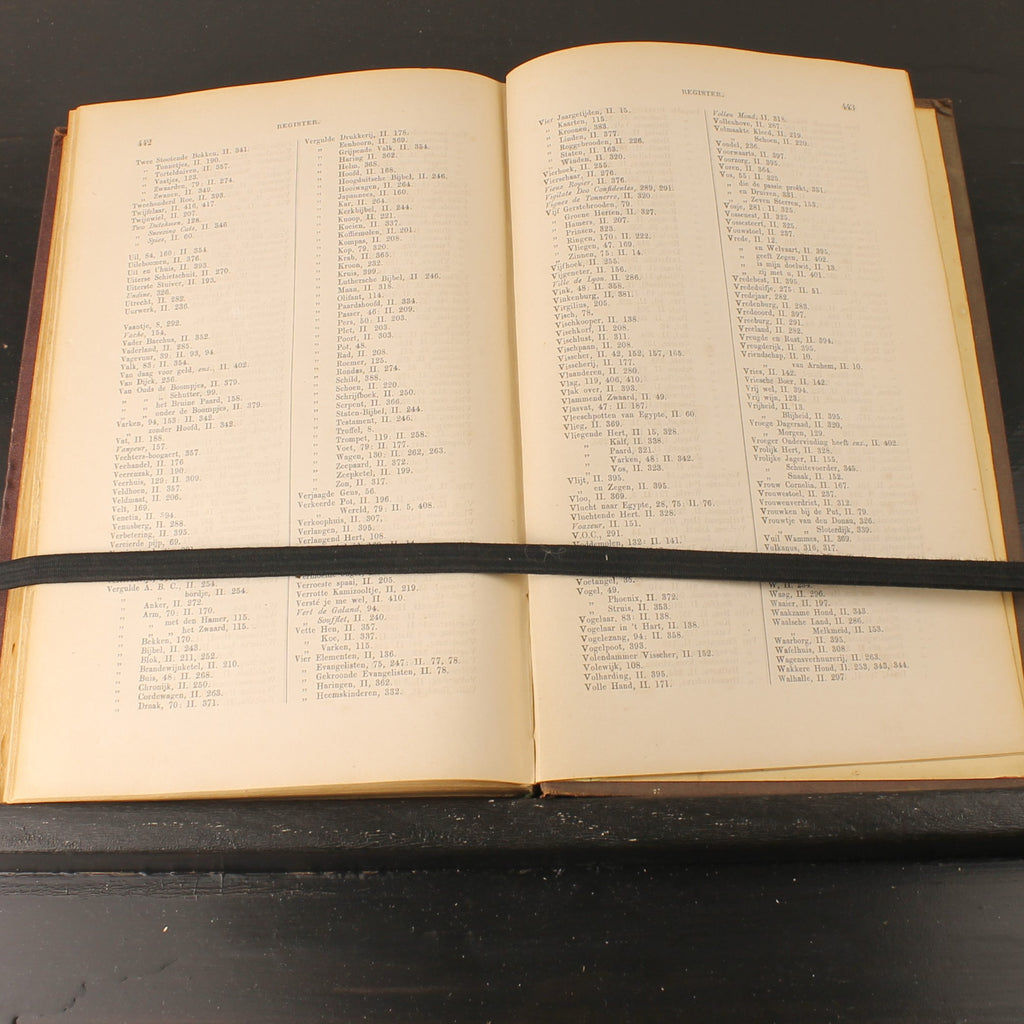 442
REGISTER.
Twee Stootende Bokken, II. 341.
„ Tonnetjes, II. 190.
„ Torteldüiven, II. 357.
„ Vaatjes, 123.
„ Zwaarden, 79; II. 274.
„ Zwanen, II. 349.
Tweehonderd Roe, II. 393.
Twijfelaar, II. 416, 417
Twijnwiel, II. 207.
Two Dutchmen, 128.
„ Sweezing Cats, II. 346
„ Spies, II. 60.
Uil, 84, 160; II. 354
Uileboomen, II. 376.
Uil en 't huis, II. 393.
Uiterse Schietschuit, II. 270.
Uiterste Stuiver, II. 193.
Undine, 326.
Utrecht, II. 282.
Uurwerk, II. 236.
Vaantje, 8, 292.
Vache, 154.
Vader Bacchus, II. 352.
Vaderland, II. 285.
Vagevuur, 39; II. 93, 94
Valk, 83; II. 354.
Van daag voor geld, enz., II. 402.
Van Dijck, 256.
Van Ouds de Boompjes, II. 379.
„ „ „ Schutter, 99.
„ „ het Bruine Paard, 158.
„ „ onder de Boompjes, II. 379.
Varken, 94, 153; II. 342.
„ zonder Hoofd, II. 342.
Vat, II. 188.
Vaupeur, 157.
Vechters-boogaert, 357.
Veehandel, II. 176
Veerenzak, II. 190.
Veerhuis, 129; II. 309.
Veldhoen, II. 357.
Veldmaat, II. 206.
Velt, 169.
Venetia, II. 294.
Venusberg, II. 288.
Verbetering, II. 395.
Vercierde pijp, 69.
Vergulde A. B. C., II. 254.
„ bordje, II. 254.
„ Anker, II. 272.
„ Arm, 70; II. 170.
„ „ met den Hamer, 115.
„ „ „ het Zwaard, 115.
„ Bekken, 170.
„ Bijbel, II. 243.
„ Blok, II. 211, 252.
„ Brandewijnketel, II. 210.
„ Buis, 48; II. 268.
„ Chronijk, II. 250.
„ Cordewagen, II. 263.
„ Draak, 70; II. 371.
Vergulde Drukkerij, II. 178.
„ Eenhoorn, II. 369.
„ Grijpende Valk, II. 354.
„ Haring II. 362.
„ Helm, 368.
„ Hoofd, II. 168.
„ Hoogduitsche Bijbel, II. 246.
„ Hooiwagen, II. 264.
„ Japannees, II. 160.
„ Kar, II. 264.
„ Kerkbijbel, II. 244.
„ Knoop, II. 221.
„ Koeien, II. 337.
„ Koffiemolen, II. 201.
„ Kompas, II. 208.
„ Kop, 79, 320.
„ Krab, II. 365.
„ Kroon, 232.
„ Kruis, 399.
„ Luthersche Bijbel, II. 246.
„ Maan, II. 318.
„ Olifant, 114.
„ Paardshoofd, II. 334.
„ Passer, 46; II. 209.
„ Pers, 50; II. 203.
„ Plet, II. 203.
„ Poort, II. 303.
„ Pot, 48.
„ Rad, II. 208.
„ Roemer, 125.
„ Rondas, II. 274.
„ Schild, 388.
„ Schoen, II. 220.
„ Schrijfboek, II. 250.
„ Serpent, II. 366.
„ Staten-Bijbel, II. 244.
„ Testament, II. 246.
„ Troffel, 8.
„ Trompet, 119; II. 258.
„ Voet, 79; II. 177.
„ Wagen, 130; II. 262, 263.
„ Zeepaard, II. 372.
„ Zeepketel, II. 199.
„ Zon, II. 317.
Verjaagde Geus, 56.
Verkeerde Pot, II. 196.
„ Wereld, 79; II. 5, 408.
Verkoophuis, II. 307.
Verlangen, II. 395.
Verlangend Hert, 108.
Verroeste spaai, II. 205.
Verrotte Kamizooltje, II. 219.
Versté je me wel, II. 410.
Vert de Galand, 94.
„ Soufflet, II. 240.
Vette Hen, II. 357.
„ Koe, II. 337.
„ Varken, 115.
Vier Elementen, II, 136.
„ Evangelisten, 75, 247; II. 77, 78.
„ Gekroonde Evangelisten, II. 78.
„ Haringen, II, 362.
„ Heemskinderen, 332.
REGISTER.
443
Vier Jaargetijden, II. 15.
„ Kaarten, 115.
„ Kroonen, 383.
„ Linden, II. 377.
„ Roggebrooden, II. 226.
„ Staten, II. 163.
„ Winden, II. 320.
Vierhoek, II. 255.
Vierschaar, II. 276.
Vieux Rosier, II. 376.
Vigilate Deo Confidentes, 289, 291.
Vignes de Tonnerre, II. 320.
Vijf Gerstebrooden, 79.
„ Groene Herten, II. 327.
„ Hamers, II. 207.
„ Prinsen, 323.
„ Ringen, 170; II. 222.
„ Vliegen, 47. 169.
„ Zinnen, 75; II. 14.
Vijfhoek, II. 255.
Vijgeneter, II. 156.
Ville de Lyon, II. 286.
Vink, 48; II. 358.
Vinkenburg, II, 381.
Virgilius, 205.
Visch, 78.
Vischkooper, II. 138.
Vischkorf, II. 208.
Vischlust, II. 311.
Vischpann, II. 208.
Visscher, II. 42, 152, 157, 165.
Visscherij, II. 177.
Vlaanderen, II. 280.
Vlag, 119, 406, 410.
Vlak over, II. 393.
Vlammend Zwaard, II. 49.
Vlasvat, 47; II. 187.
Vleeschpotten van Egypte, II. 60.
Vlieg, II. 369.
Vliegende Hert, II. 15, 328.
„ Kalf, II. 338.
„ Paard, 321.
„ Varken, 48; II. 342.
„ Vos, II. 323.
Vlijt, II. 395.
„ en Zegen, II. 395.
Vloo, II. 369.
Vlucht naar Egypte, 28, 75; II. 76.
Vluchtende Hert. II. 328.
Voazeur, II. 151.
V.O.C., 291.
Voddemolen, 132; II. 141.
Voetangel, 35.
Vogel, 49.
„ Phoenix, II. 372.
„ Struis, II. 353.
Vogelaar, 83; II. 138.
Vogelaar in 't Hart, II. 138.
Vogelezang, 94; II. 358.
Vogelpoot, 393.
Volendammer Visscher, II. 152.
Volewijk, 108.
Volharding, II. 395.
Volle Hand, II. 171.
Vollen Mond, II. 318.
Vollenhove, II. 287.
Volmaakte Kleed, II. 219.
„ Schoen, II. 220.
Vondel, 236.
Voorwaarts, II. 397.
Voorzorg, II. 395.
Vozen, II. 364.
Vos, 55; II. 325.
„ die de passie preêkt, 351.
„ en Druiven, 331.
„ „ Zeven Sterren, 153.
Vosje, 281; II. 325.
Vossenest, II. 325.
Vossesteert, II. 325.
Vouwstoel, II. 237.
Vrede, II. 12.
„ en Welvaart, II. 395.
„ geeft Zegen, II. 402.
„ is mijn doelwit, II. 13.
„ zij met u, II. 401.
Vredebest, II. 395.
Vrededuifje, 275; II. 51.
Vredejaar, 282.
Vredenburg, II. 283.
Vredeoord, II. 397.
Vreeburg, II. 291.
Vreeland, II. 282.
Vreugde en Rust, II. 394.
Vreugderijk, II. 395.
Vriendschap, II. 10.
„ van Arnhem, II. 10.
Vries, II. 142.
Vriesche Boer, II. 142.
Vrij wel, II. 394.
Vrij wijn, 123.
Vrijheid, II. 13.
„ Blijheid, II. 395.
Vroege Dageraad, II. 320,
„ Morgen, 129.
Vroeger Ondervinding heeft enz., II. 402.
Vrolijk Hert, II. 328.
Vrolijke Jager, II. 155.
„ Schuitevoerder, 345.
„ Snaak, II. 152.
Vrouw Cornelia, II. 167.
Vrouwestoel, II. 237.
Vrouwenverdriet, II. 312.
Vrouwken bij de Put, II. 79.
Vrouwtje van den Donau, 326.
„ „ Sloterdijk, 339.
Vuil Wammes, II. 369.
Vulkanus, 316, 317.
W, II. 254.
Waag, II. 296.
Waaier, II. 197.
Waakzame Hond, II. 343.
Waalsche Land, II. 286.
„ Melkmeid, II. 153.
Waarborg, II. 395.
Wafelhuis, II. 308.
Wagenverhuurerij, II. 263.
Wakkere Hond, II. 253, 343, 344.
Walhalle, II. 297.